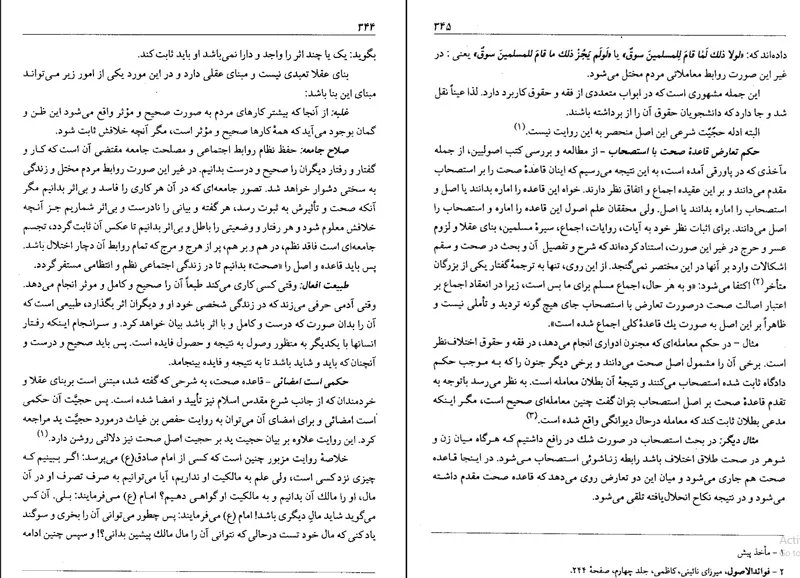 ۳۴۴
بگوید: یک یا چند اثر را واجد و دارا نمی‌باشد او باید ثابت کند.
بنای عقلا تعبدی نیست و مبنای عقلی دارد و در این مورد یکی از امور زیر می‌تواند
مبنای این بنا باشد:
غلبه: از آنجا که بیشتر کارهای مردم به صورت صحیح و مؤثر واقع می‌شود این ظن و
گمان بوجود می‌آید که همهٔ کارها صحیح و مؤثر است، مگر آنچه خلافش ثابت شود.
صلاح جامعه: حفظ نظام روابط اجتماعی و مصلحت جامعه مقتضی آن است که کار و
گفتار و رفتار دیگران را صحیح و درست بدانیم. در غیر این صورت روابط مردم مختل و زندگی
به سختی دشوار خواهد شد. تصور جامعه‌ای که در آن هر کاری را فاسد و بی‌اثر بدانیم مگر
آنکه صحت و تأثیرش به ثبوت رسد، هر گفته و بیانی را نادرست و بی‌اثر شماریم جز آنچه
خلافش معلوم شود و هر رفتار و وضعیتی را باطل و بی‌اثر بدانیم تا عکس آن ثابت گردد، تجسم
جامعه‌ای است فاقد نظم، در هم و بر هم، پر از هرج و مرج که تمام روابط آن دچار اختلال باشد.
پس باید قاعده و اصل را «صحت» بدانیم تا در زندگی اجتماعی نظم و انتظامی مستقر گردد.
طبیعت افعال: وقتی کسی کاری می‌کند طبعاً آن را صحیح و کامل و موثر انجام می‌دهد.
وقتی آدمی حرفی می‌زند که در زندگی شخصی خود او و دیگران اثر بگذارد، طبیعی است که
آن را بدان صورت که درست و کامل و با اثر باشد بیان خواهد کرد. و سرانجام اینکه رفتار
انسانها با یکدیگر به منظور وصول به نتیجه و حصول فایده است. پس باید صحیح و درست و
آنچنان که باید و شاید باشد تا به نتیجه و فایده بینجامد.
حکمی است امضائی - قاعده صحت، به شرحی که گفته شد، مبتنی است بربنای عقلا و
خردمندان که از جانب شرع مقدس اسلام نیز تأیید و امضا شده است. پس حجیّت آن حکمی
است امضائی و برای امضای آن می‌توان به روایت حفص بن غیاث درمورد حجیت ید مراجعه
کرد. این روایت علاوه بر بیان حجیت ید بر حجیت اصل صحت نیز دلالتی روشن دارد.(۱)
خلاصهٔ روایت مزبور چنین است که کسی از امام صادق(ع) می‌پرسد: اگر ببینیم که
چیزی نزد کسی است، ولی علم به مالکیت او نداریم، آیا می‌توانیم به صرف تصرف او در آن
مال، او را مالک آن بدانیم و به مالکیت او گواهی دهیم؟ امام (ع) می‌فرمایند: بلی. آن کس
می‌گوید شاید مال دیگری باشد! امام (ع) می‌فرمایند: پس چطور می‌توانی آن را بخری و سوگند
یاد کنی که مال خود تست درحالی که نتوانی آن را مال مالك پیشین بدانی؟! و سپس چنین ادامه
۳۴۵
داده‌اند که: «لولا ذلك لَمٰا قامَ لِلمسلمینَ سوقٌ» یا «لَولَم یَجُز ذلك ما قامَ لِلمسلمینَ سوقٌ» یعنی : در
غیر این صورت روابط معاملاتی مردم مختل می‌شود.
این جمله مشهوری است که در ابواب متعددی از فقه و حقوق کاربرد دارد. لذا عیناً نقل
شد و جا دارد که دانشجویان حقوق آن را از برداشته باشند.
البته ادله حجّیّت شرعی این اصل منحصر به این روایت نیست.(۱)
حکم تعارض قاعدهٔ صحت با استصحاب - از مطالعه و بررسی کتب اصولیین، از جمله
مآخذی که در پاورقی آمده است، به این نتیجه می‌رسیم که اینان قاعدهٔ صحت را بر استصحاب
مقدم می‌دانند و بر این عقیده اجماع و اتفاق نظر دارند. خواه این قاعده را اماره بدانند یا اصل و
استصحاب را اماره بدانند یا اصل. ولی محققان علم اصول این قاعده را اماره و استصحاب را
اصل می‌دانند. برای اثبات نظر خود به آیات، روایات، اجماع، سیرهٔ مسلمین، بنای عقلا و لزوم
عسر و حرج در غیر این صورت، استناد کرده‌اند که شرح و تفصیل آن و بحث در صحت و سقم
اشکالات وارد بر آنها در این مختصر نمی‌گنجد. از این روی، تنها به ترجمهٔ گفتار یکی از بزرگان
متأخر(۲) اکتفا می‌شود: «و به هر حال، اجماع مسلم برای ما بس است، زیرا در انعقاد اجماع بر
اعتبار اصالت صحت درصورت تعارض با استصحاب جای هیچ گونه تردید و تأملی نیست و
ظاهراً بر این اصل به صورت یك قاعدهٔ کلی اجماع شده است».
مثال - در حکم معامله‌ای که مجنون ادواری انجام می‌دهد، در فقه و حقوق اختلاف‌نظر
است. برخی آن را مشمول اصل صحت می‌دانند و برخی دیگر جنون را که به موجب حکم
دادگاه ثابت شده استصحاب می‌کنند و نتیجهٔ آن بطلان معامله است. به نظر می‌رسد باتوجه به
تقدم قاعدهٔ صحت بر اصل استصحاب بتوان گفت چنین معامله‌ای صحیح است، مگر اینکه
مدعی بطلان ثابت کند که معامله درحال دیوانگی واقع شده است.(۳)
مثال دیگر: در بحث استصحاب در صورت شك در رافع داشتیم که هرگاه میان زن و
شوهر در صحت طلاق اختلاف باشد رابطه زناشوئی استصحاب می‌شود. در اینجا قاعده
صحت هم جاری می‌شود و میان این دو تعارض روی می‌دهد که قاعده صحت مقدم داشته
می‌شود و در نتیجه نکاح انحلال‌یافته تلقی می‌شود.
۱ - مأخذ پیش
۲ - فوائدالاصول، میرزای نائینی، کاظمی، جلد چهارم، صفحهٔ ۲۴۴.